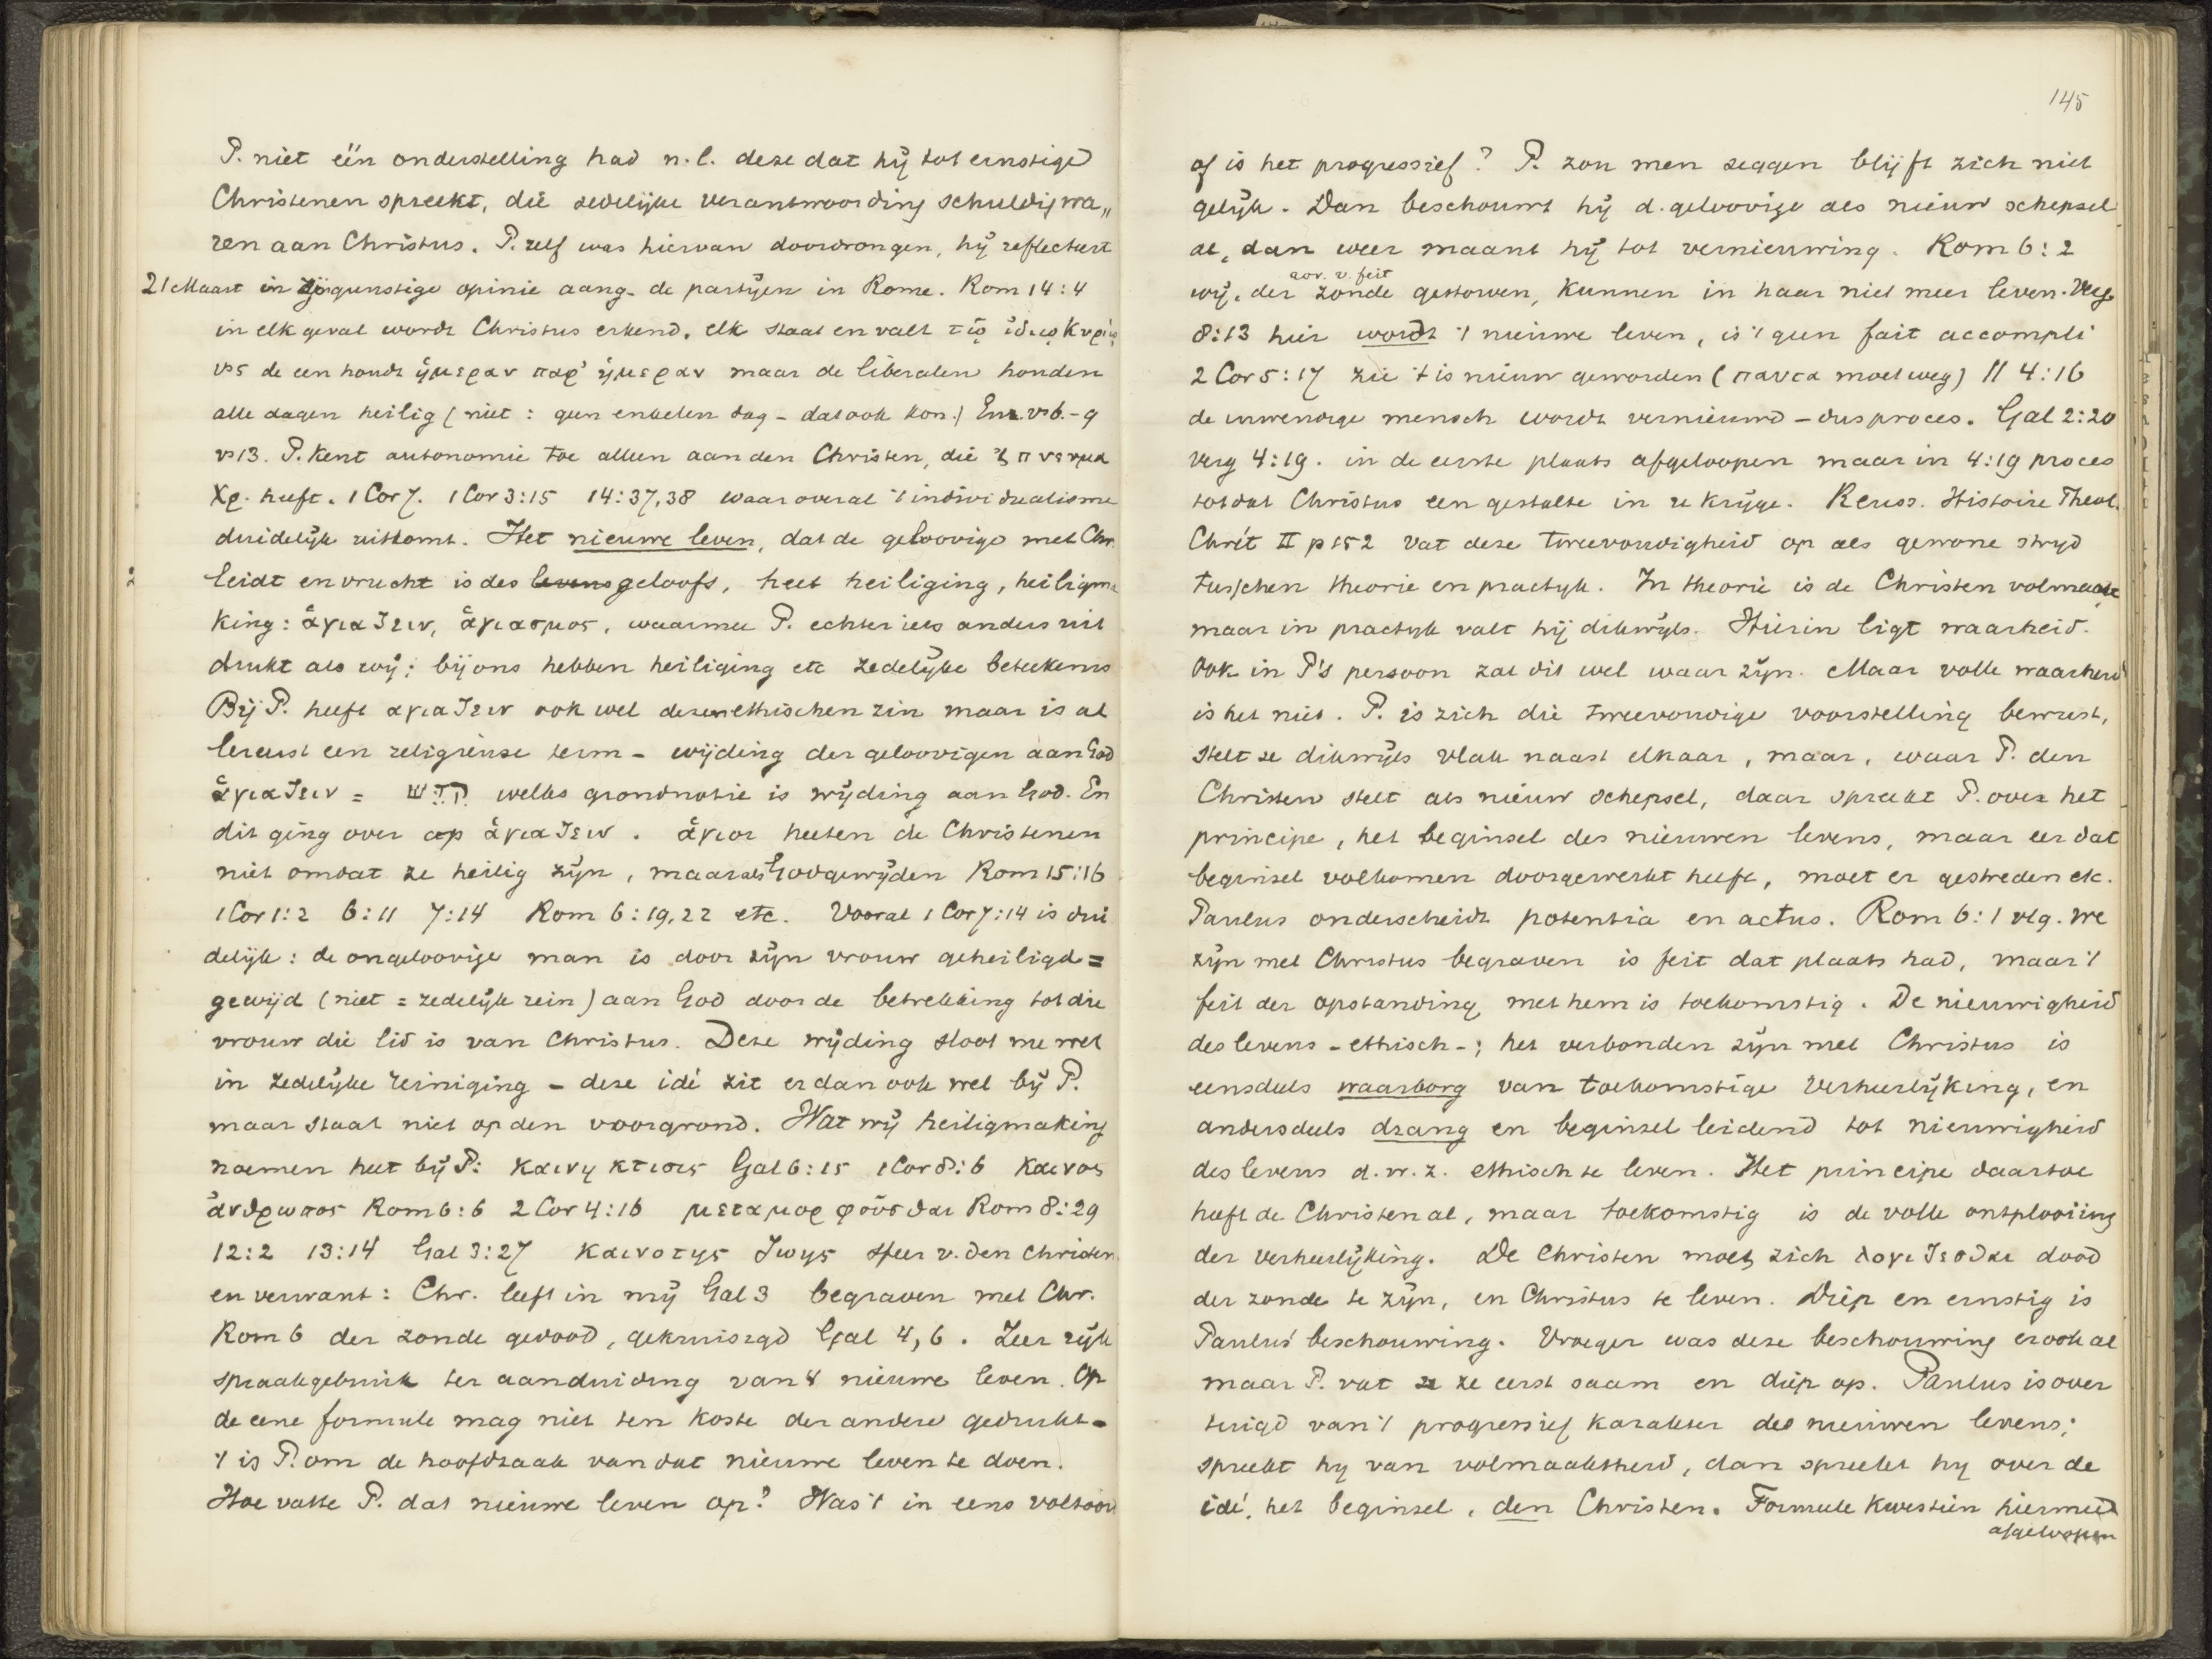 P. niet één onderstelling had n.l. deze dat hij tot ernstige
Christenen spreekt, die zedelijke verantwoording schuldig wa„
ren aan Christus. P. zelf was hiervan doordrongen, hij reflecteert
21 Maart in zijn gunstige opinie aang. de partijen in Rome. Rom 14:4
in elk geval wordt Christus erkend. elk staat en valt τῷ ἰδιῳ Κυριῳ
vs 5 de een houdt ἡμεραν παρ' ἡμεραν maar de liberalen houden
alle dagen heilig (niet: geen enkelen dag – dat ook kon.) Enz. vs 6.-9
vs 13. P. kent autonomie toe alleen aan den Christen, die 't πνευμα
Χρ. heeft. 1 Cor 7. 1 Cor 3:15 14:37,38 waar overal 't individualisme
duidelijk uitkomt. Het nieuwe leven, dat de geloovige met Chr.
2 leidt en vrucht is des levens geloofs, heet heiliging, heiligma
king: ἁγιαζειν, ἁγιασμος, waarmee P. echter iets anders uit
drukt als wij: bij ons hebben heiliging etc zedelijke beteekenis
Bij P. heeft αγιαζειν ook wel dezen ethischen zin maar is al
lereerst een religieuse term – wijding der geloovigen aan God
ἁγιαζειν = קדש welks grondnotie is wijding aan God. En
dit ging over op ἁγιαζειν. ἁγιοι heeten de Christenen
niet omdat ze heilig zijn, maar als Godgewijden Rom 15:16
1 Cor 1:2 6:11 7:14 Rom 6:19,22 etc. Vooral 1 Cor 7:14 is dui
delijk: de ongeloovige man is door zijn vrouw geheiligd =
gewijd (niet = zedelijk rein) aan God door de betrekking tot die
vrouw die lid is van Christus. Deze wijding sloot nu wel
in zedelijke reiniging – deze idé zit er dan ook wel bij P.
maar staat niet op den voorgrond. Wat wij heiligmaking
noemen heet bij P: καινη κτισις Gal 6:15 1 Cor 8:6 καινος
ἀνθρωπος Rom 6:6 2 Cor 4:16 μεταμορφοῦσθαι Rom 8:29
12:2 13:14 Gal 3:27 καινοτης ζωης sfeer v. den Christen
en verwant: Chr. leeft in mij Gal 3 begraven met Chr.
Rom 6 der zonde gedood, gekruisigd Gal 4,6. Zeer rijk
spraakgebruik ter aanduiding van 't nieuwe leven. Op
de eene formule mag niet ten koste der andere gedrukt –
't is P. om de hoofdzaak van dat nieuwe leven te doen.
Hoe vatte P. dat nieuwe leven op? Was 't in eens voltooi
145
of is het progressief? P. zou men zeggen blijft zich niet
gelijk. Dan beschouwt hij d. geloovige als nieuw schepsel
al, dan weer maant hij tot vernieuwing. Rom 6:2
aor. v. feit
wij, der zonde gestorven, kunnen in haar niet meer leven. Verg
8:13 hier wordt 't nieuwe leven, is 't geen fait accompli
2 Cor 5:17 zie 't is nieuw geworden (παντα moet weg) // 4:16
de inwendige mensch wordt vernieuwd – dus proces. Gal 2:20
verg 4:19. in de eerste plaats afgeloopen maar in 4:19 proces
totdat Christus een gestalte in u krijge. Reuss. Histoire Theol.
Chrét II p 152 vat deze tweevoudigheid op als gewone strijd
tusschen theorie en practijk. In theorie is de Christen volmaakt
maar in practijk valt hij dikwijls. Hierin ligt waarheid.
Ook in P's persoon zal dit wel waar zijn. Maar volle waarheid
is het niet. P. is zich die tweevoudige voorstelling bewust,
stelt ze dikwijls vlak naast elkaar, maar, waar P. den
Christen stelt als nieuw schepsel, daar spreekt P. over het
principe, het beginsel des nieuwen levens, maar eer dat
beginsel volkomen doorgewerkt heeft, moet er gestreden etc.
Paulus onderscheidt potentia en actus. Rom 6:1 vlg. We
zijn met Christus begraven is feit dat plaats had, maar 't
feit der opstanding met hem is toekomstig. De nieuwigheid
des levens – ethisch –; het verbonden zijn met Christus is
eensdeels waarborg van toekomstige verheerlijking, en
andersdeels drang en beginsel leidend tot nieuwigheid
des levens d.w.z. ethisch te leven. Het principe daartoe
heeft de Christen al, maar toekomstig is de volle ontplooiing
der verheerlijking. De Christen moet zich λογιζεσθαι dood
der zonde te zijn, en Christus te leven. Diep en ernstig is
Paulus' beschouwing. Vroeger was deze beschouwing er ook al
maar P. vat ze ze eerst saam en diep op. Paulus is over
tuigd van 't progressief karakter des nieuwen levens;
spreekt hij van volmaaktheid, dan spreekt hij over de
idé, het beginsel, den Christen. Formule kwestiën hiermee
afgeloopen